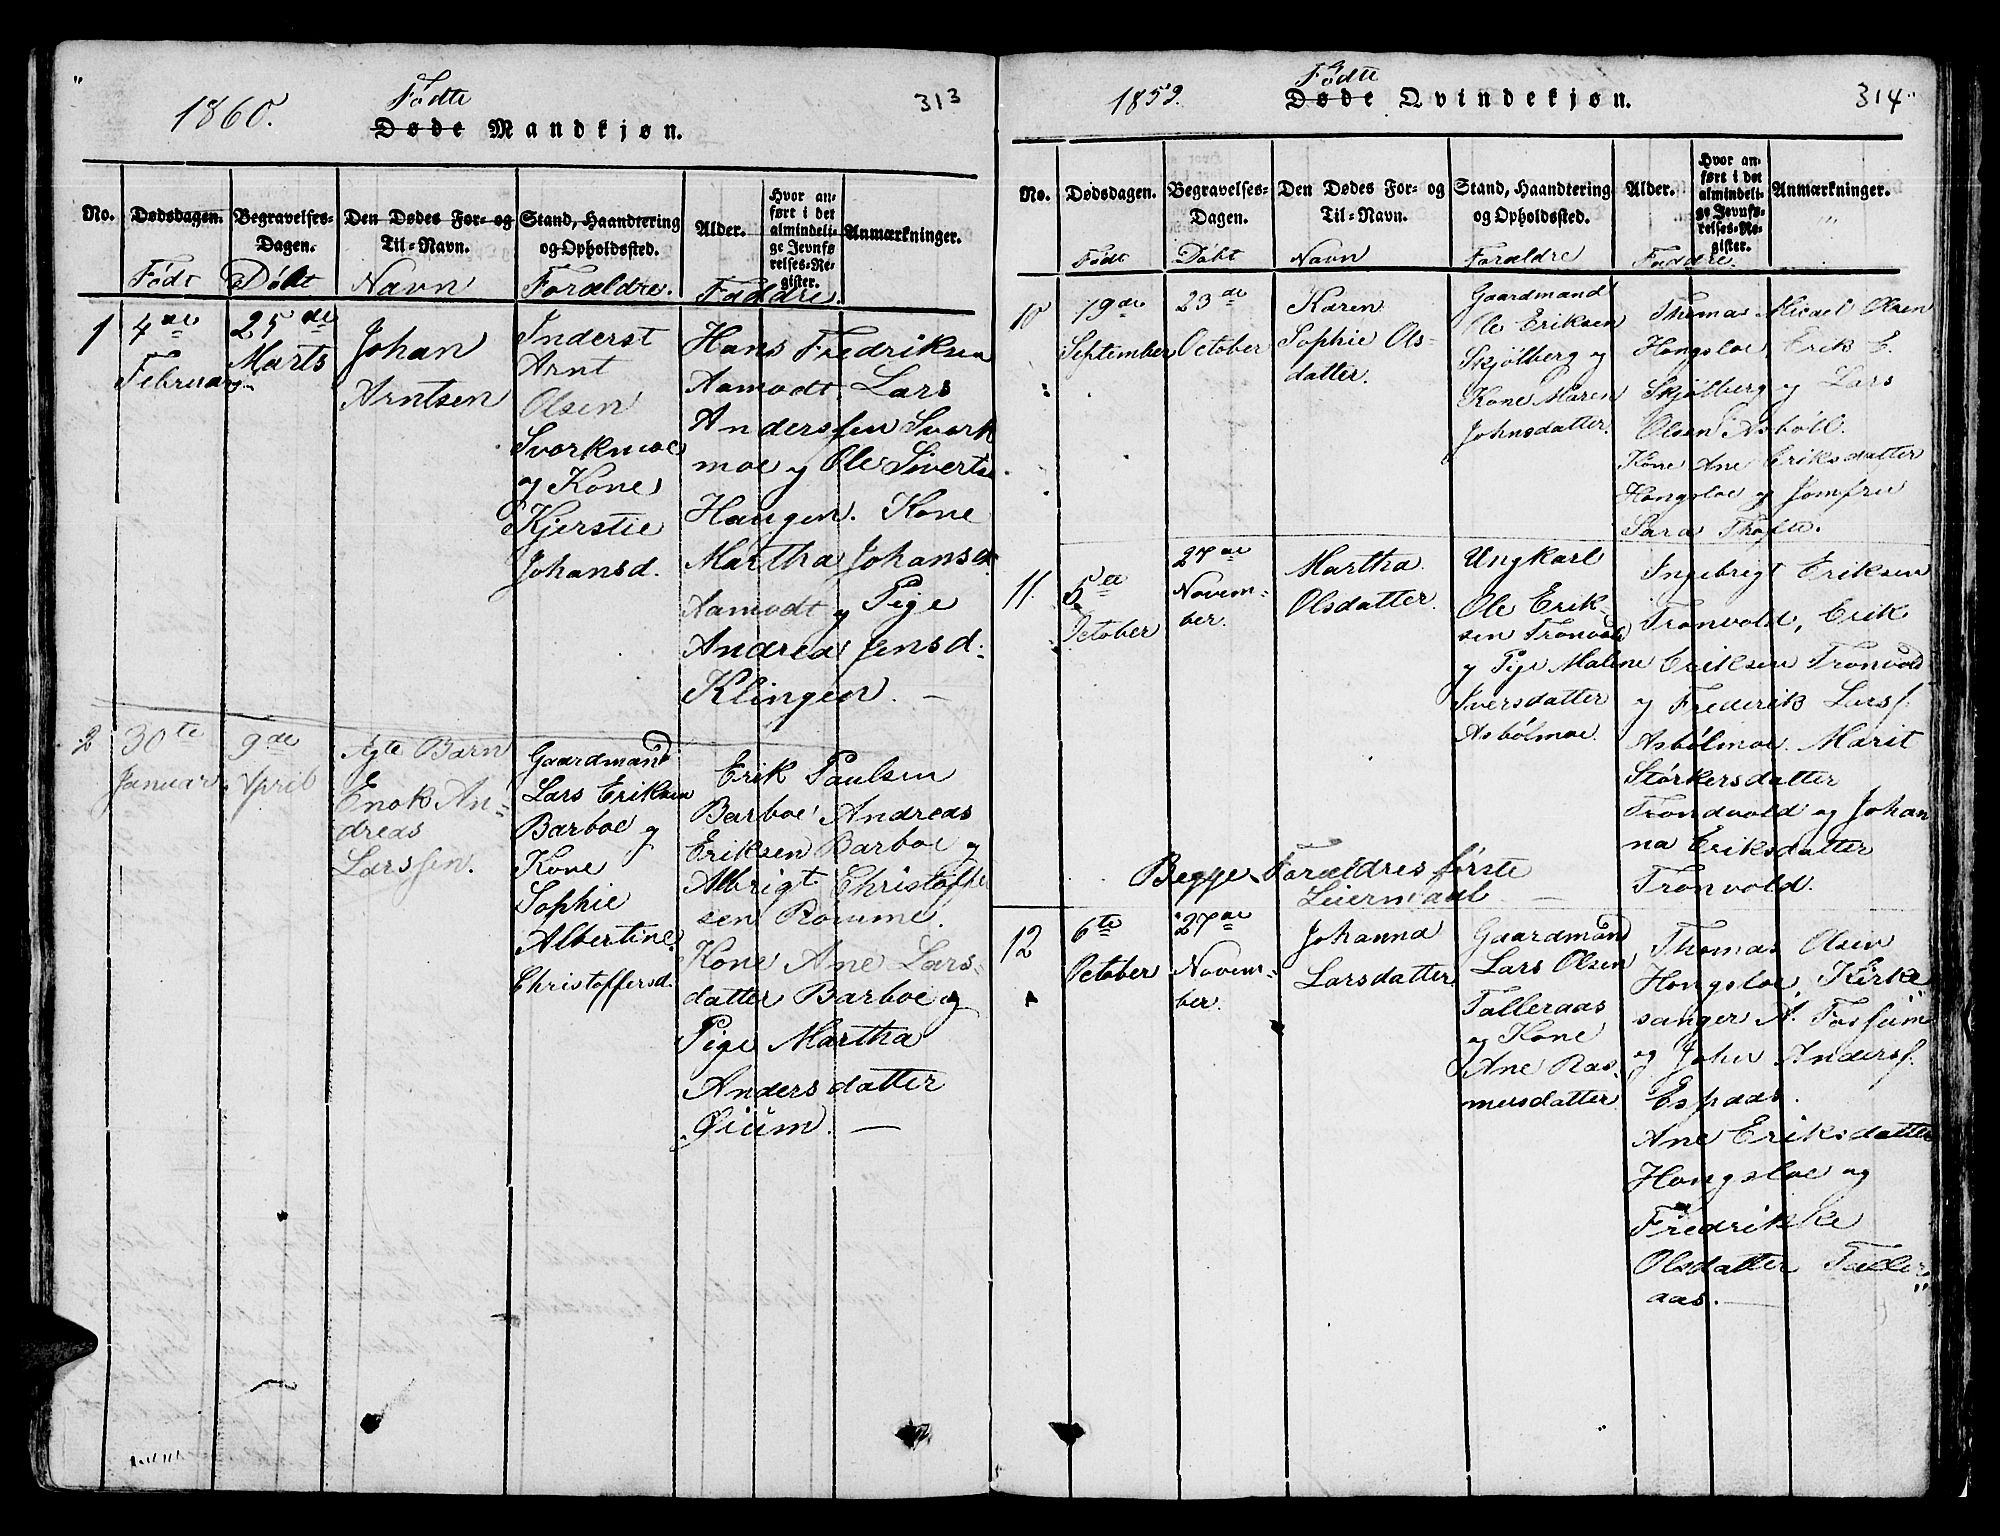 1860.
Fødte
313
Døde Mandkjøn.
No.
Dødsdagen.
Født
Begravelses-
Dagen.
Døbt
Den Dødes For- og
Til-Navn.
Navn
Stand, Haandtering
og Opholdssted.
Forældre.
Alder.
Faddre.
Hvor an-
ført i det
almindeli-
ge Jevnfø-
relses-Re-
gister.
Anmærkninger.
1
4de
Februar
25de
Marts
Johan
Arntsen
Inderst
Arnt
Olsen
Svorkmoe
og Kone
Kjerstie
Johansd.
Hans Fredriksen
Aamodt, Lars
Anderssen Svork
moe og Ole Siverts
Haugen. Kone
Martha Johansd.
Aamodt og Pige
Andrea Jensd:
Klingen. —
2
30te
Januar
9de
April
Ægte Barn
Enok An-
dreas
Larssen.
Gaardmand
Lars Eriksen
Barboe og
Kone
Sophie
Albertine
Christoffersd.
Erik Paulsen
Barboe Andreas
Eriksen Barboe og
Albrigt Christoffe
sen Romme.
Kone Ane Lars-
datter Barboe og
Pige Martha
Andersdatter
Øium. —
1859.
Fødte
Døde Qvindekjøn.
314
No.
Dødsdagen.
Født
Begravelses-
Dagen.
Døbt
Den Dødes For- og
Til-Navn.
Navn
Stand, Haandtering
og Opholdssted.
Forældre
Alder.
Faddre.
Hvor an-
ført i det
almindeli-
ge Jevnfø-
relses-Re-
gister.
Anmærkninger.
10
19de
September
23de
October
Karen
Sophie Ols-
datter.
Gaardmand
Ole Eriksen
Skjølberg og
Kone Maren
Johnsdatter.
Thomas Micael Olsen
Hongsloe, Erik E.
Skjølberg og Lars
Olsen Asbøll.
Kone Ane Eriksdatter
Hongsloe og Jomfru
Sara Thofte.
11.
5te
October
27de
Novem-
ber.
Martha
Olsdatter.
Ungkarl
Ole Erik-
sen Tronvold
og Pige Maline
Iversdatter
Asbølmoe.
Ingebrigt Eriksen
Tronvold, Erik
Eriksen Tronvold
og Frederik Larss.
Asbølmoe. Marit
Størkersdatter
Trondvold og Johan
na Eriksdatter
Tronvold.
Begge Forældres første
Leiermaal —
12
6te
October
27de
Novem-
ber.
Johanna
Larsdatter
Gaardmand
Lars Olsen
Talleraas
og Kone
Ane Ras-
musdatter
Thomas Olsen
Hongsloe, Kirke
sanger A. Fossum
og John Anderss.
Espaas.
Ane Eriksdatter
Hongsloe og
Fredrikke
Olsdatter Taller
aas. —